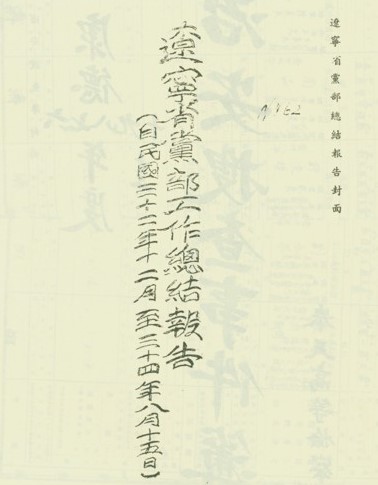 遼寧省黨部總結報告封面
遼寧省黨部工作總結報告
(自民國三十二年十二月至三十四年八月十五日)